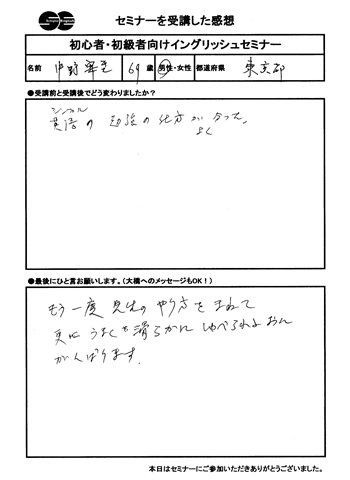 セミナーを受講した感想
初心者・初級者向けイングリッシュセミナー
名前 中野 69 歳 男性・女性 都道府県 東京都
●受講前と受講後でどう変わりましたか？
シンプル
英語の勉強の仕方が分った。
よく
●最後にひと言お願いします。（大橋へのメッセージもOK！）
もう一度先生のやり方をまねて
更にうまく滑らかに しゃべられるよう
がんばります。
本日はセミナーにご参加いただきありがとうございました。